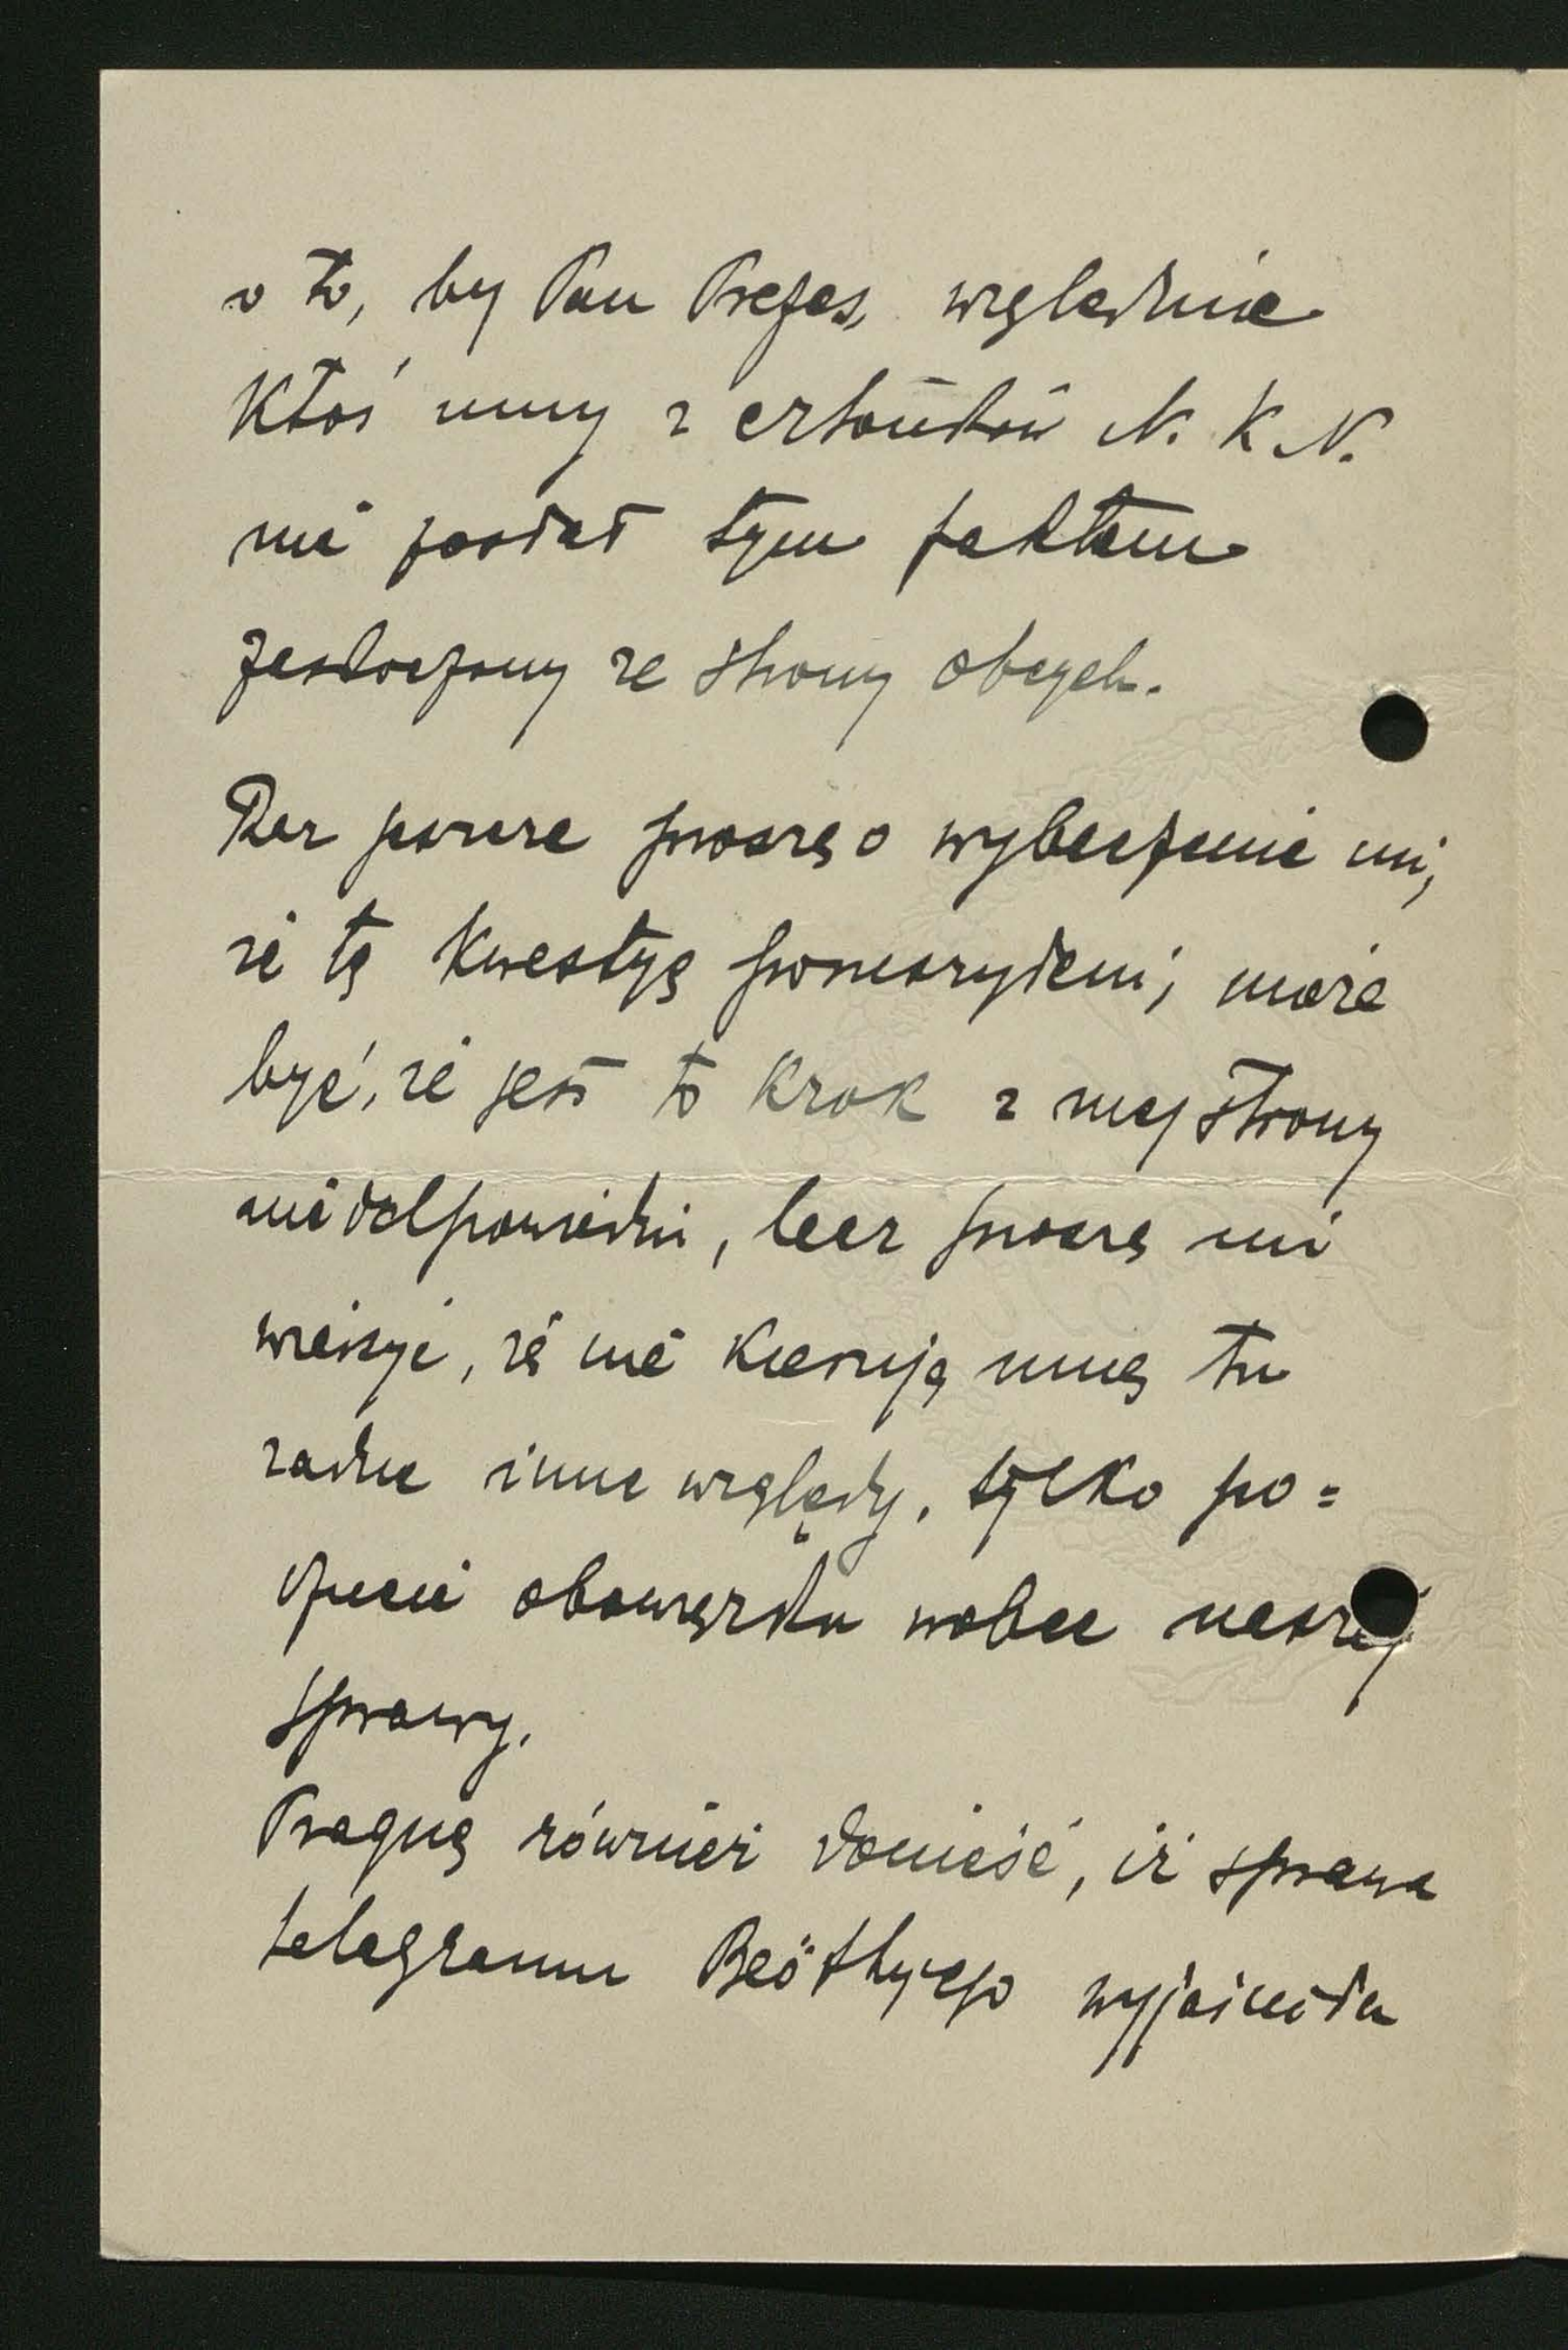 o to, by Pan Prezes, względnie
ktoś inny z członków N. K. N.
nie został tym faktem
zaskoczony ze strony obcych.
Raz jeszcze proszę o wybaczenie mi,
że tę kwestyę poruszyłem; może
być, że jest to krok z mej strony
nieodpowiedni, lecz proszę mi
wierzyć, że nie kierują mną tu
żadne inne względy, tylko po=
czucie obowiązku wobec naszej
sprawy.
Pragnę również donieść, iż sprawa
telegramu Beöthyego wyjaśniła